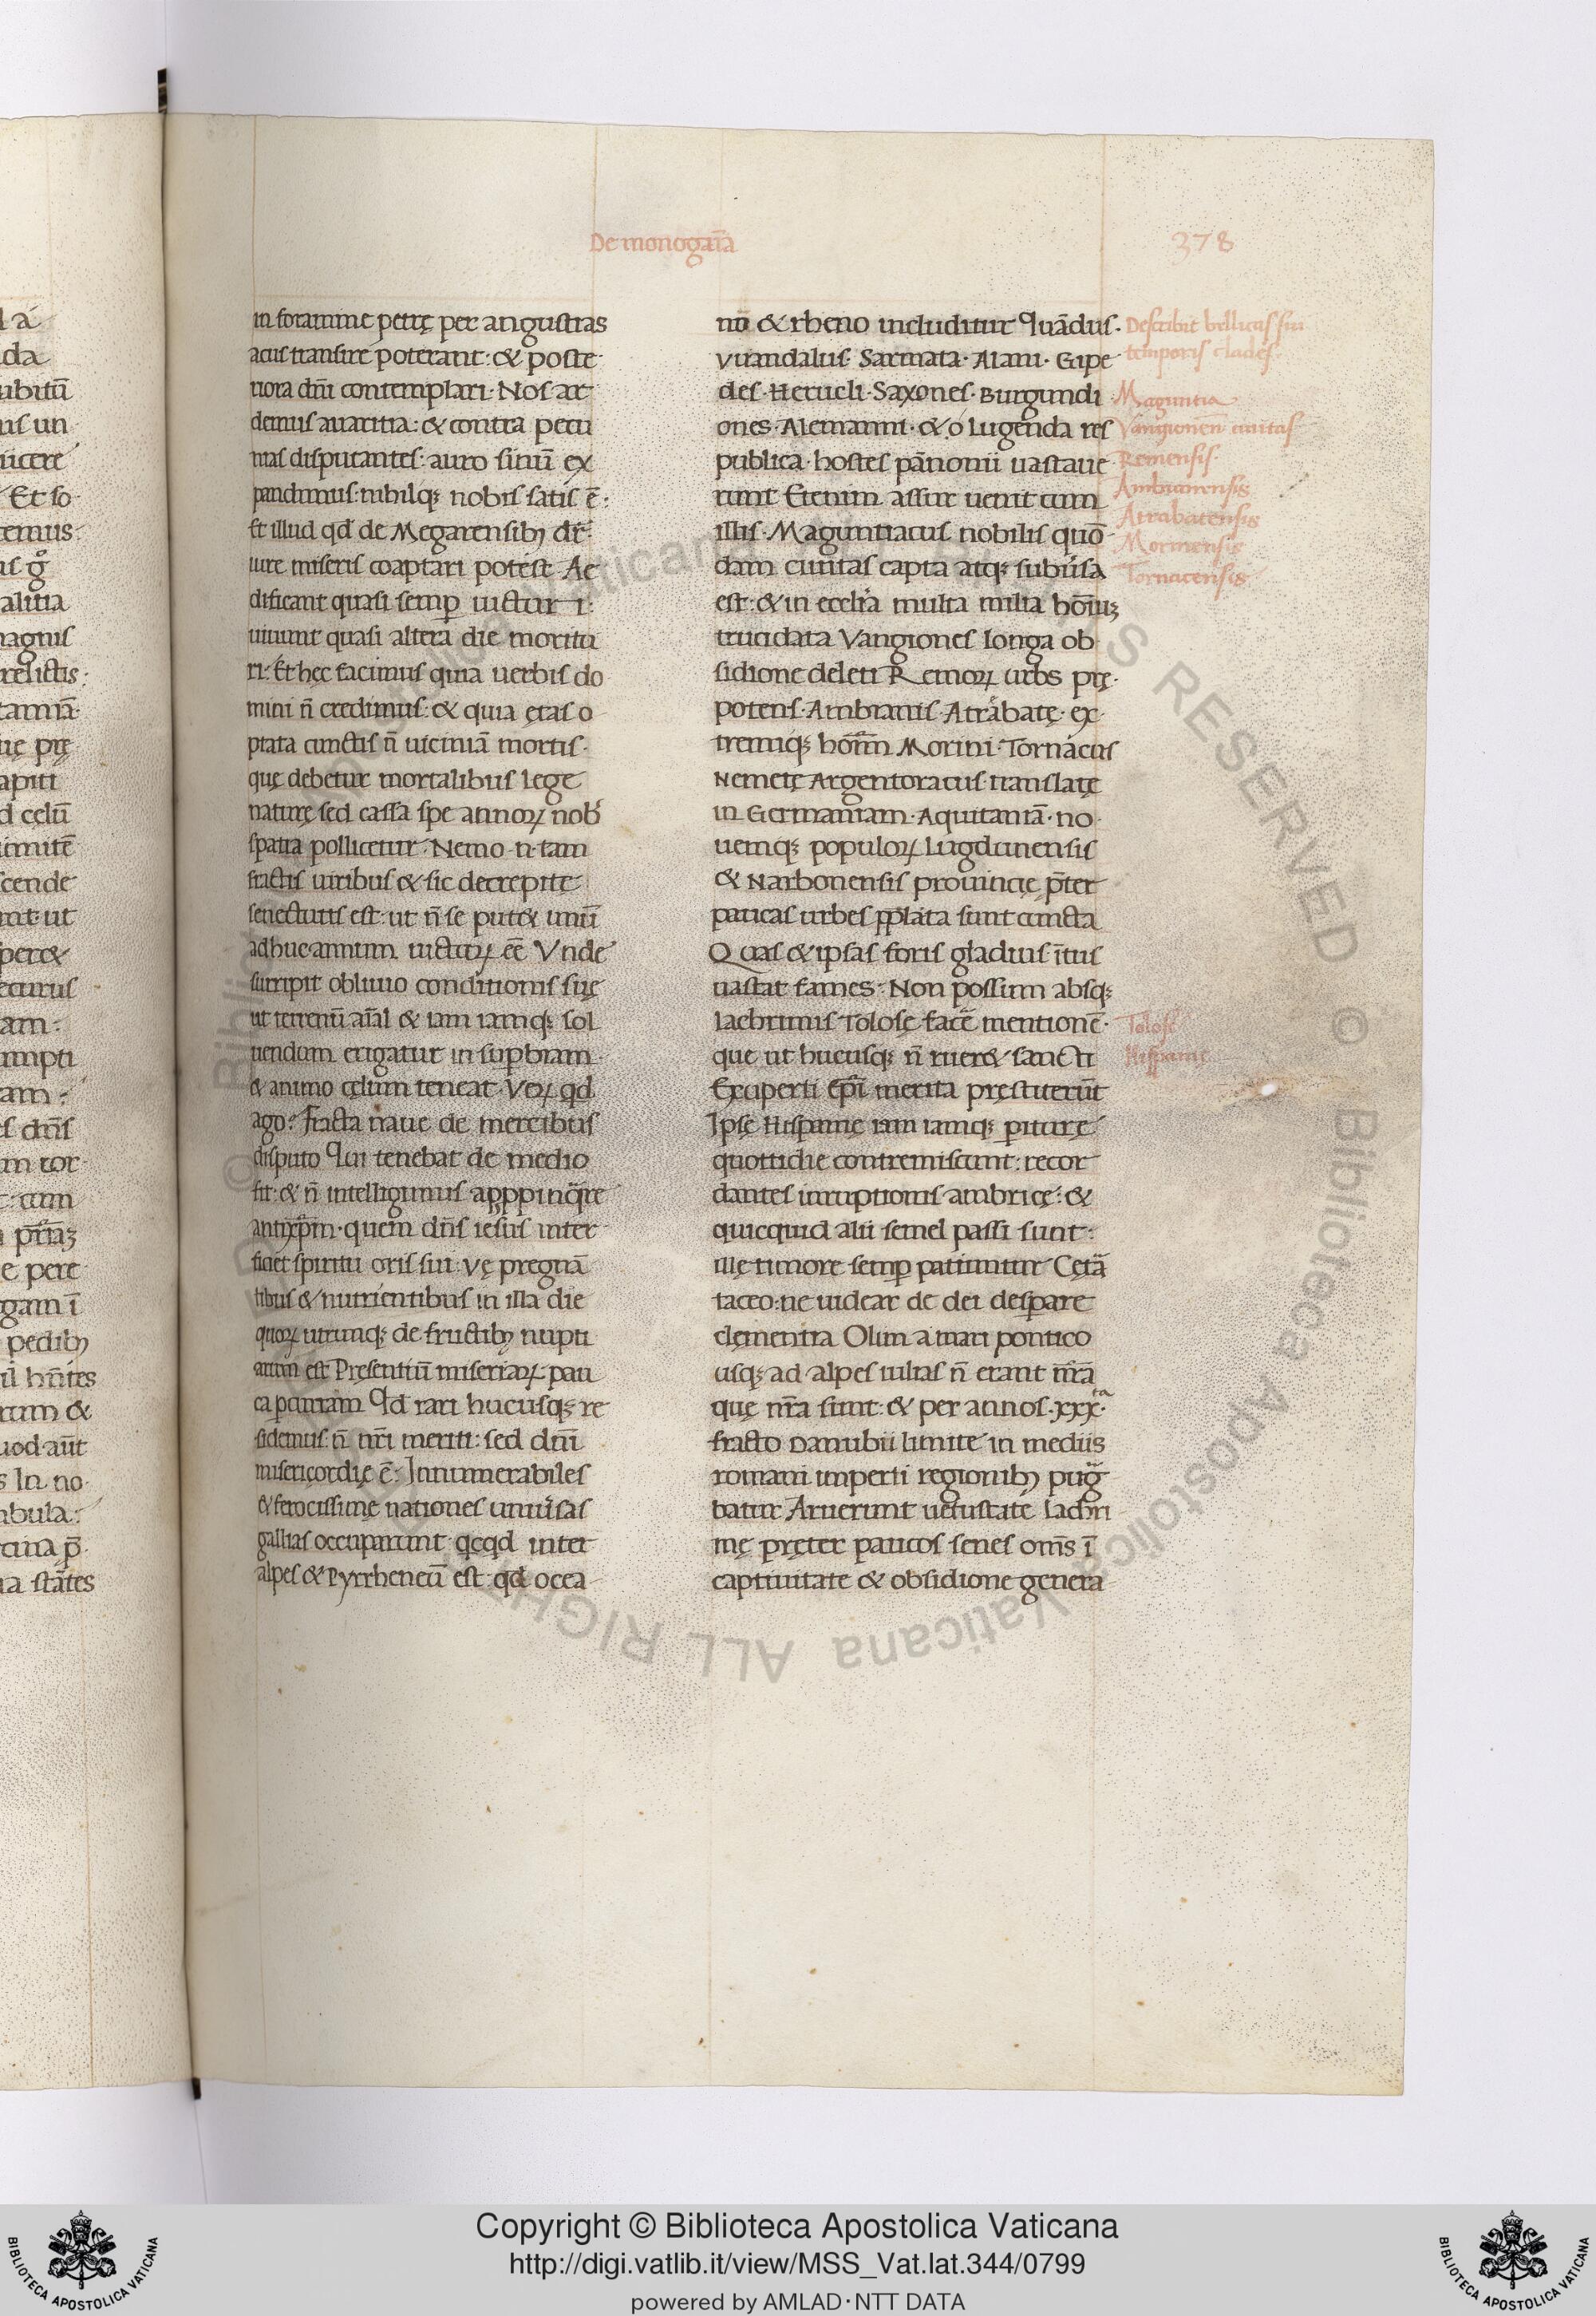 De monogaĩa
378
in foramine petrę per angustias
acus transire poterant: & poste
riora dñi contemplari. Nos ar
demus auaritia: & contra pecu
nias disputantes: auro sinũ ex
pandimus: nihilq; nobis satis ẽ:
Et illud qd de Megarensibꝫ dr̃
iure miseris coaptari potest. Ae
dificant quasi semꝑ uicturi:
uiuunt quasi altera die moritu
ri: Et hęc facimus quia uerbis do
mini ñ credimus: & quia ętas o
ptata cunctis ñ uiciniã mortis
quę debetur mortalibus lege
naturę sed cassa spe annoꝝ nob̃
spatia pollicetur. Nemo .n. tam
fractis uiribus & sic decrepitę
senectutis est: ut ñ se put& unũ
adhuc annum uictuꝝ eẽ Vnde
surripit obliuio conditionis suę
ut terrenũ aĩal & iam iamq; sol
uendum erigatur in suꝑbiam
& animo cęlum teneat. Veꝝ qd
ago? Fracta naue de mercibus
disputo Qui tenebat de medio
fit: & ñ intelligimus apꝓpinq̃re
antixp̃m. quem dñs iesus inter
ficiet spiritu oris sui. Vę pregnã
tibus & nutrientibus in illa die
quoꝝ utrunq; de fructibꝫ nupti
arum est Pręsentiũ miseriaꝝ pau
ca ꝑcurram Qd rari hucusq; re
sidemus: ñ nr̃i meriti: sed dñi
misericordię ẽ: Innumerabiles
& ferocissimę nationes uniũsas
gallias occuparunt qcqd inter
alpes & Pyrrheneũ est: qd ocea
no & rheno includitur Quãdus.
Vuandalus. Sarmata. Alani. Gipe
des. Heruli. Saxones. Burgundi
ones. Alemanni. & ó lugenda res
publica. hostes pãnonii uastaue
runt Etenim assur uenit cum
illis. Maguntiacus nobilis quõ
dam ciuitas capta atq; subũsa
est: & in ecclia multa milia hoĩuꝫ
trucidata Vangiones longa ob
sidione deleti Remoꝝ urbs prę
potens. Ambranis. Atrábatę. ex
tremiq; hoĩm Morini. Tornácus
Nemetę Argentoratus translatę
in Germaniam. Aquitaniã. no
uemq; populoꝝ Lugdunensis
& Narbonensis prouincię p̃ter
paucas urbes ꝓplata sunt cuncta
Quas & ipsas foris gladius ĩtus
uastat fames. Non possum absq;
lachrimis Tolosę facẽ mentionẽ.
que ut hucusq; ñ ruer& sancti
Exuperii ep̃i merita pręstiterũt
Ipsę Hispanię iam iamq; ꝑiturę
quottidie contremiscunt: recor
dantes irruptionis ambricę: &
quicquid alii semel passi sunt:
illę timore semꝑ patiuntur Cętã
taceo: ne uidear de dei desꝑare
clęmentia Olim a mari pontico
usq; ad alpes iulias ñ erant nr̃a
quę nr̃a sunt: & per annos .xxx.ta
fracto Danubii limite in mediis
romani imperii regionibꝫ pug̃
batur Aruerunt uetustate lachri
mę pręter paucos senes om̃s ĩ
captiuitate & obsidione genera
Describit bellicas sui
temporis clades
Maguntia
Vangionen ciuitas
Remensis
Ambianensis
Atrabatensis
Morinensis
Tornacensis
Tolose
Hispanię
Copyright © Biblioteca Apostolica Vaticana
http://digi.vatlib.it/view/MSS_Vat.lat.344/0799
powered by AMLAD·NTT DATA